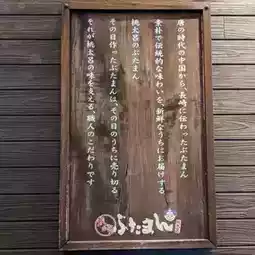 唐の時代の中国から、長崎に伝わったぶたまん
素朴で伝統的な味わいを、新鮮なうちにお届けする
桃太呂のぶたまん
その日作ったぶたまんは、その日のうちに売り切る。
それが桃太呂の味を支える、職人のこだわりです
ぶたまん